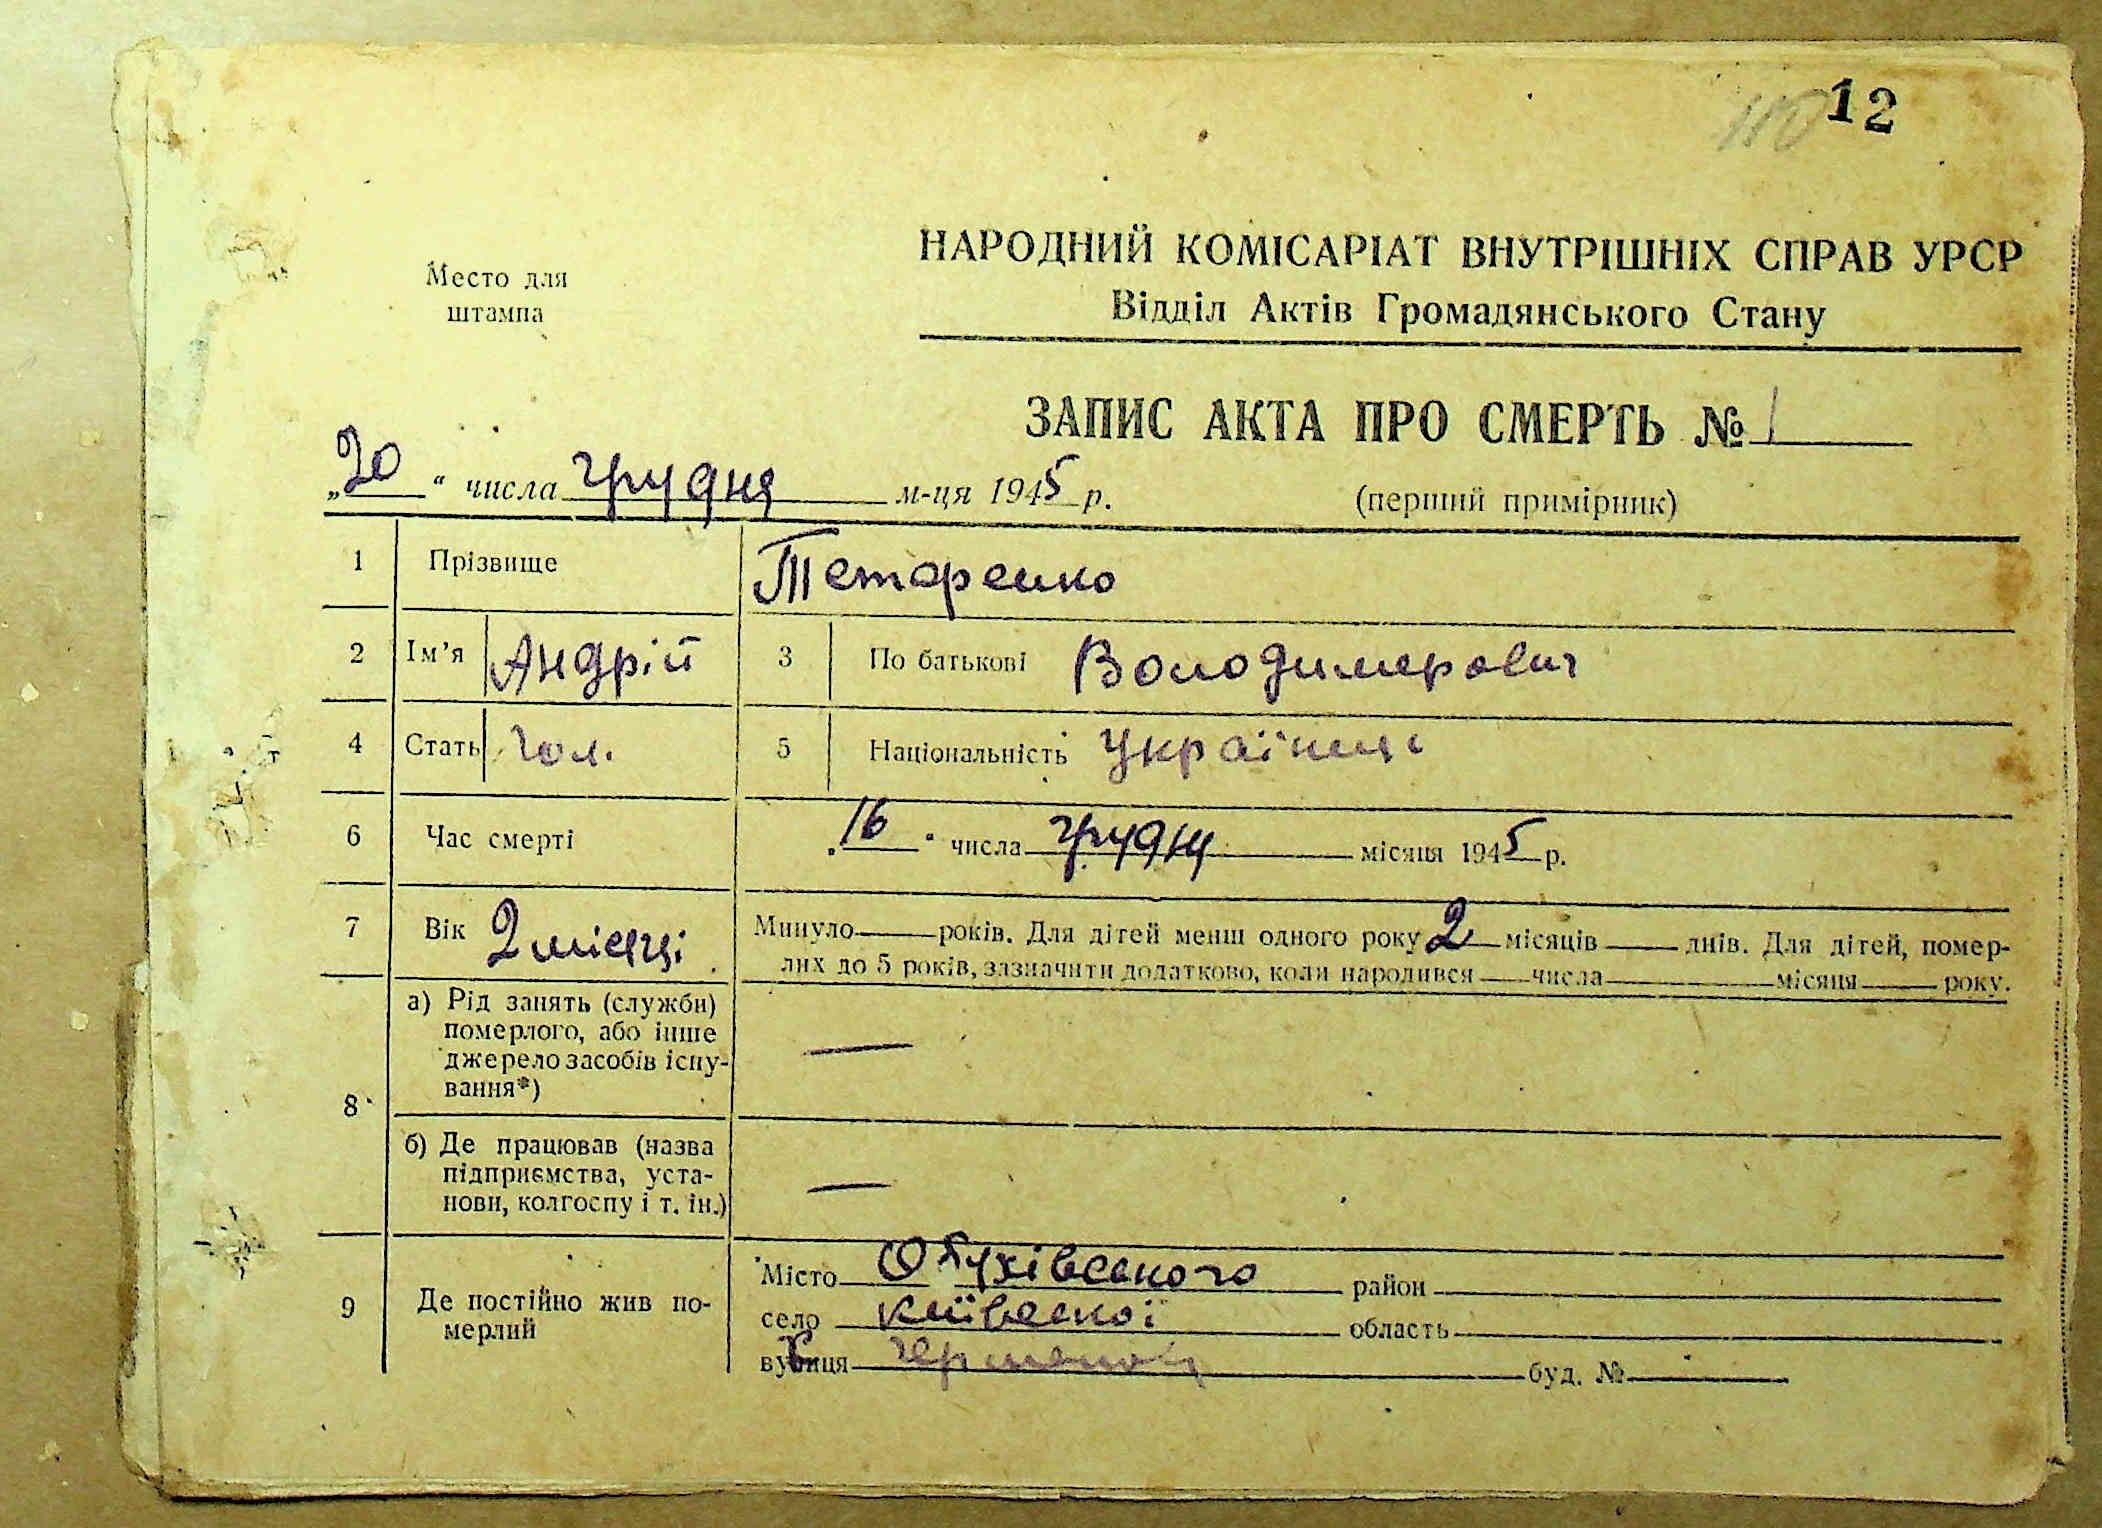 12
НАРОДНИЙ КОМІСАРІАТ ВНУТРІШНІХ СПРАВ УРСР
Відділ Актів Громадянського Стану
Место для
штампа
ЗАПИС АКТА ПРО СМЕРТЬ № 1
„20“ числа грудня м-ця 1945 р.
(перший примірник)
1 Прізвище Тетеренко
2 Ім'я Андрій 3 По батькові Володимирович
4 Стать чол. 5 Національність Українець
6 Час смерті „16“ числа грудня місяця 1945 р.
7 Вік 2 місяці Минуло років. Для дітей менш одного року 2 місяців днів. Для дітей, помер-
лих до 5 років, зазначити додатково, коли народився числа місяця року.
8
а) Рід занять (служби)
померлого, або інше
джерело засобів існу-
вання*)
—
б) Де працював (назва
підприємства, уста-
нови, колгоспу і т. ін.)
—
9 Де постійно жив по-
мерлий
Місто Обухівського район
село Київської область
вулиця буд. №